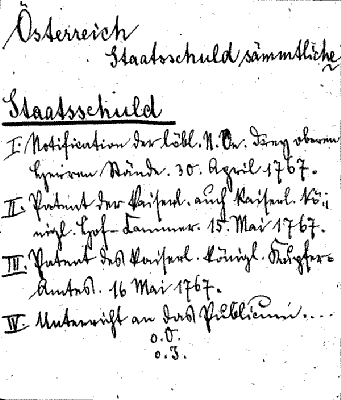 Österreich
Staatsschuld sämmtliche
Staatsschuld
I. Notification der löbl. N. Oe. Drey oberen
Herren Stände. 30. April 1767.
II. Patent der Kaiserl. auch Kaiserl. Kö-
nigl. Hof-Kammer. 15. Mai 1767.
III. Patent des Kaiserl. Königl. Kupfer-
Amtes. 16 Mai 1767.
IV. Unterricht an das Publicum....
o.O.
o.J.